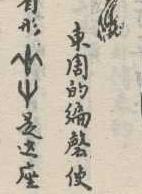 東周的编磬使
形
是这座